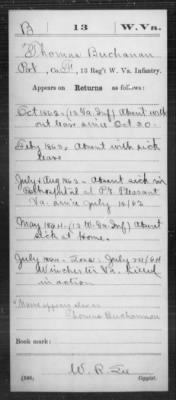 B 13 W.Va.
Thomas Buchanan
Pvt, Co. H, 13 Reg't W. Va. Infantry.
Appears on Returns as follows:
Oct 1862 - (13 Va. Inf) Absent with
out leave since Oct 20.
Feby 1863, Absent with sick
leave
July & Aug 1863 - Absent sick in
Hospital at Pt Pleasant
Va. since July 16/63
May 1864 - (13 W. Va. Inf) Absent
sick at Home.
July 1864 - Loss. July 24/64
Winchester Va. Killed
in action
Name appears also as
Thomas Buchannan
Book mark:
W. R. Lee
(546) Copyist.